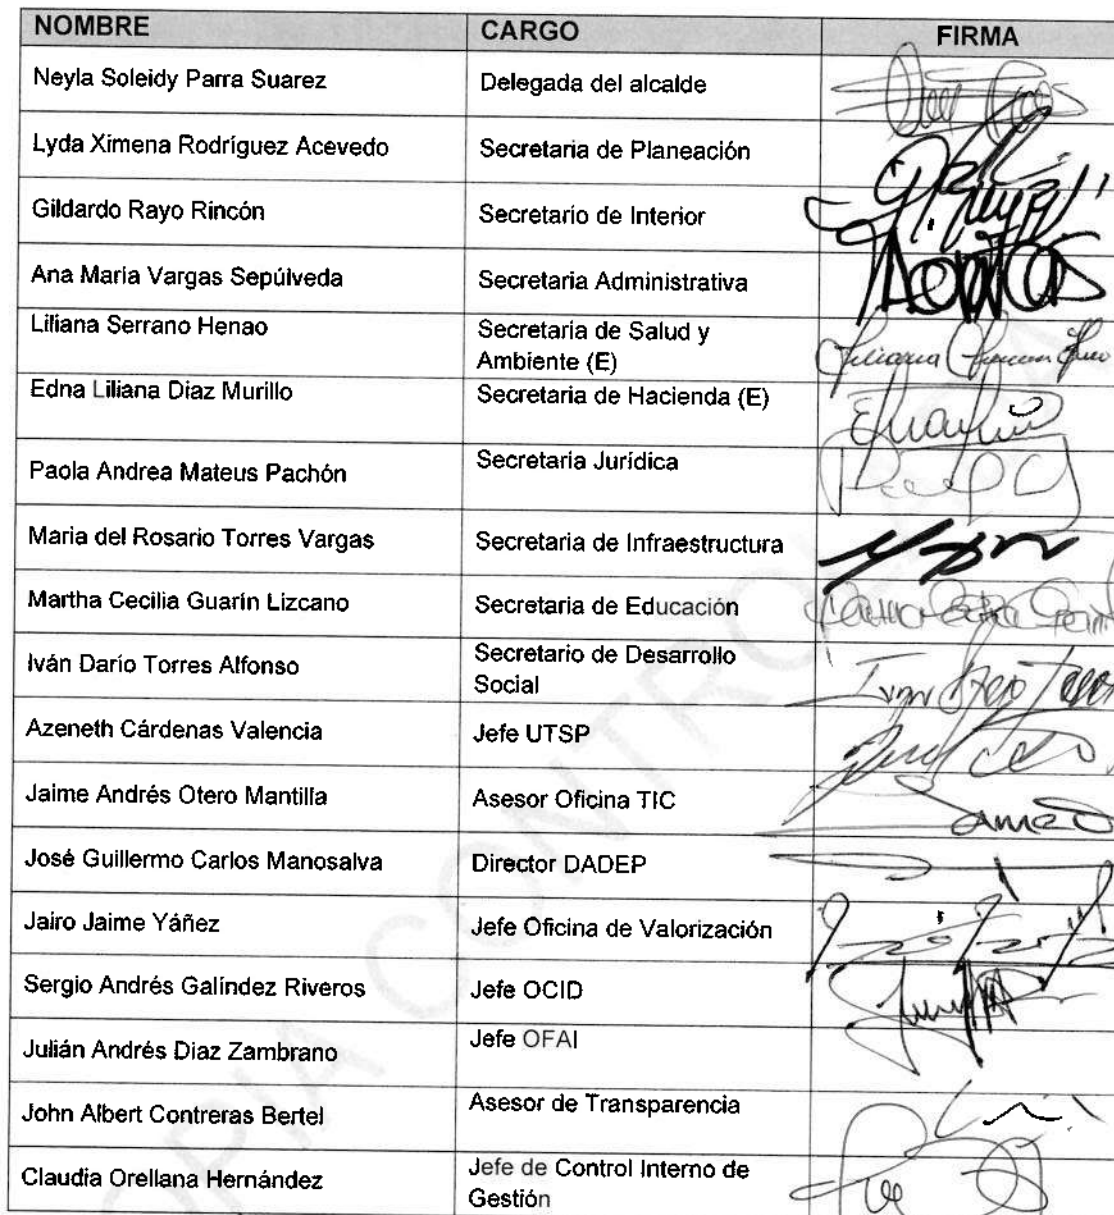 NOMBRE CARGO FIRMA
Neyla Soleidy Parra Suarez Delegada del alcalde
Lyda Ximena Rodríguez Acevedo Secretaria de Planeación
Gildardo Rayo Rincón Secretario de Interior
Ana María Vargas Sepúlveda Secretaria Administrativa
Liliana Serrano Henao Secretaria de Salud y
Ambiente (E)
Edna Liliana Diaz Murillo Secretaria de Hacienda (E)
Paola Andrea Mateus Pachón Secretaria Jurídica
Maria del Rosario Torres Vargas Secretaria de Infraestructura
Martha Cecilia Guarín Lizcano Secretaria de Educación
Iván Darío Torres Alfonso Secretario de Desarrollo
Social
Azeneth Cárdenas Valencia Jefe UTSP
Jaime Andrés Otero Mantilla Asesor Oficina TIC
José Guillermo Carlos Manosalva Director DADEP
Jairo Jaime Yáñez Jefe Oficina de Valorización
Sergio Andrés Galíndez Riveros Jefe OCID
Julián Andrés Diaz Zambrano Jefe OFAI
John Albert Contreras Bertel Asesor de Transparencia
Claudia Orellana Hernández Jefe de Control Interno de
Gestión